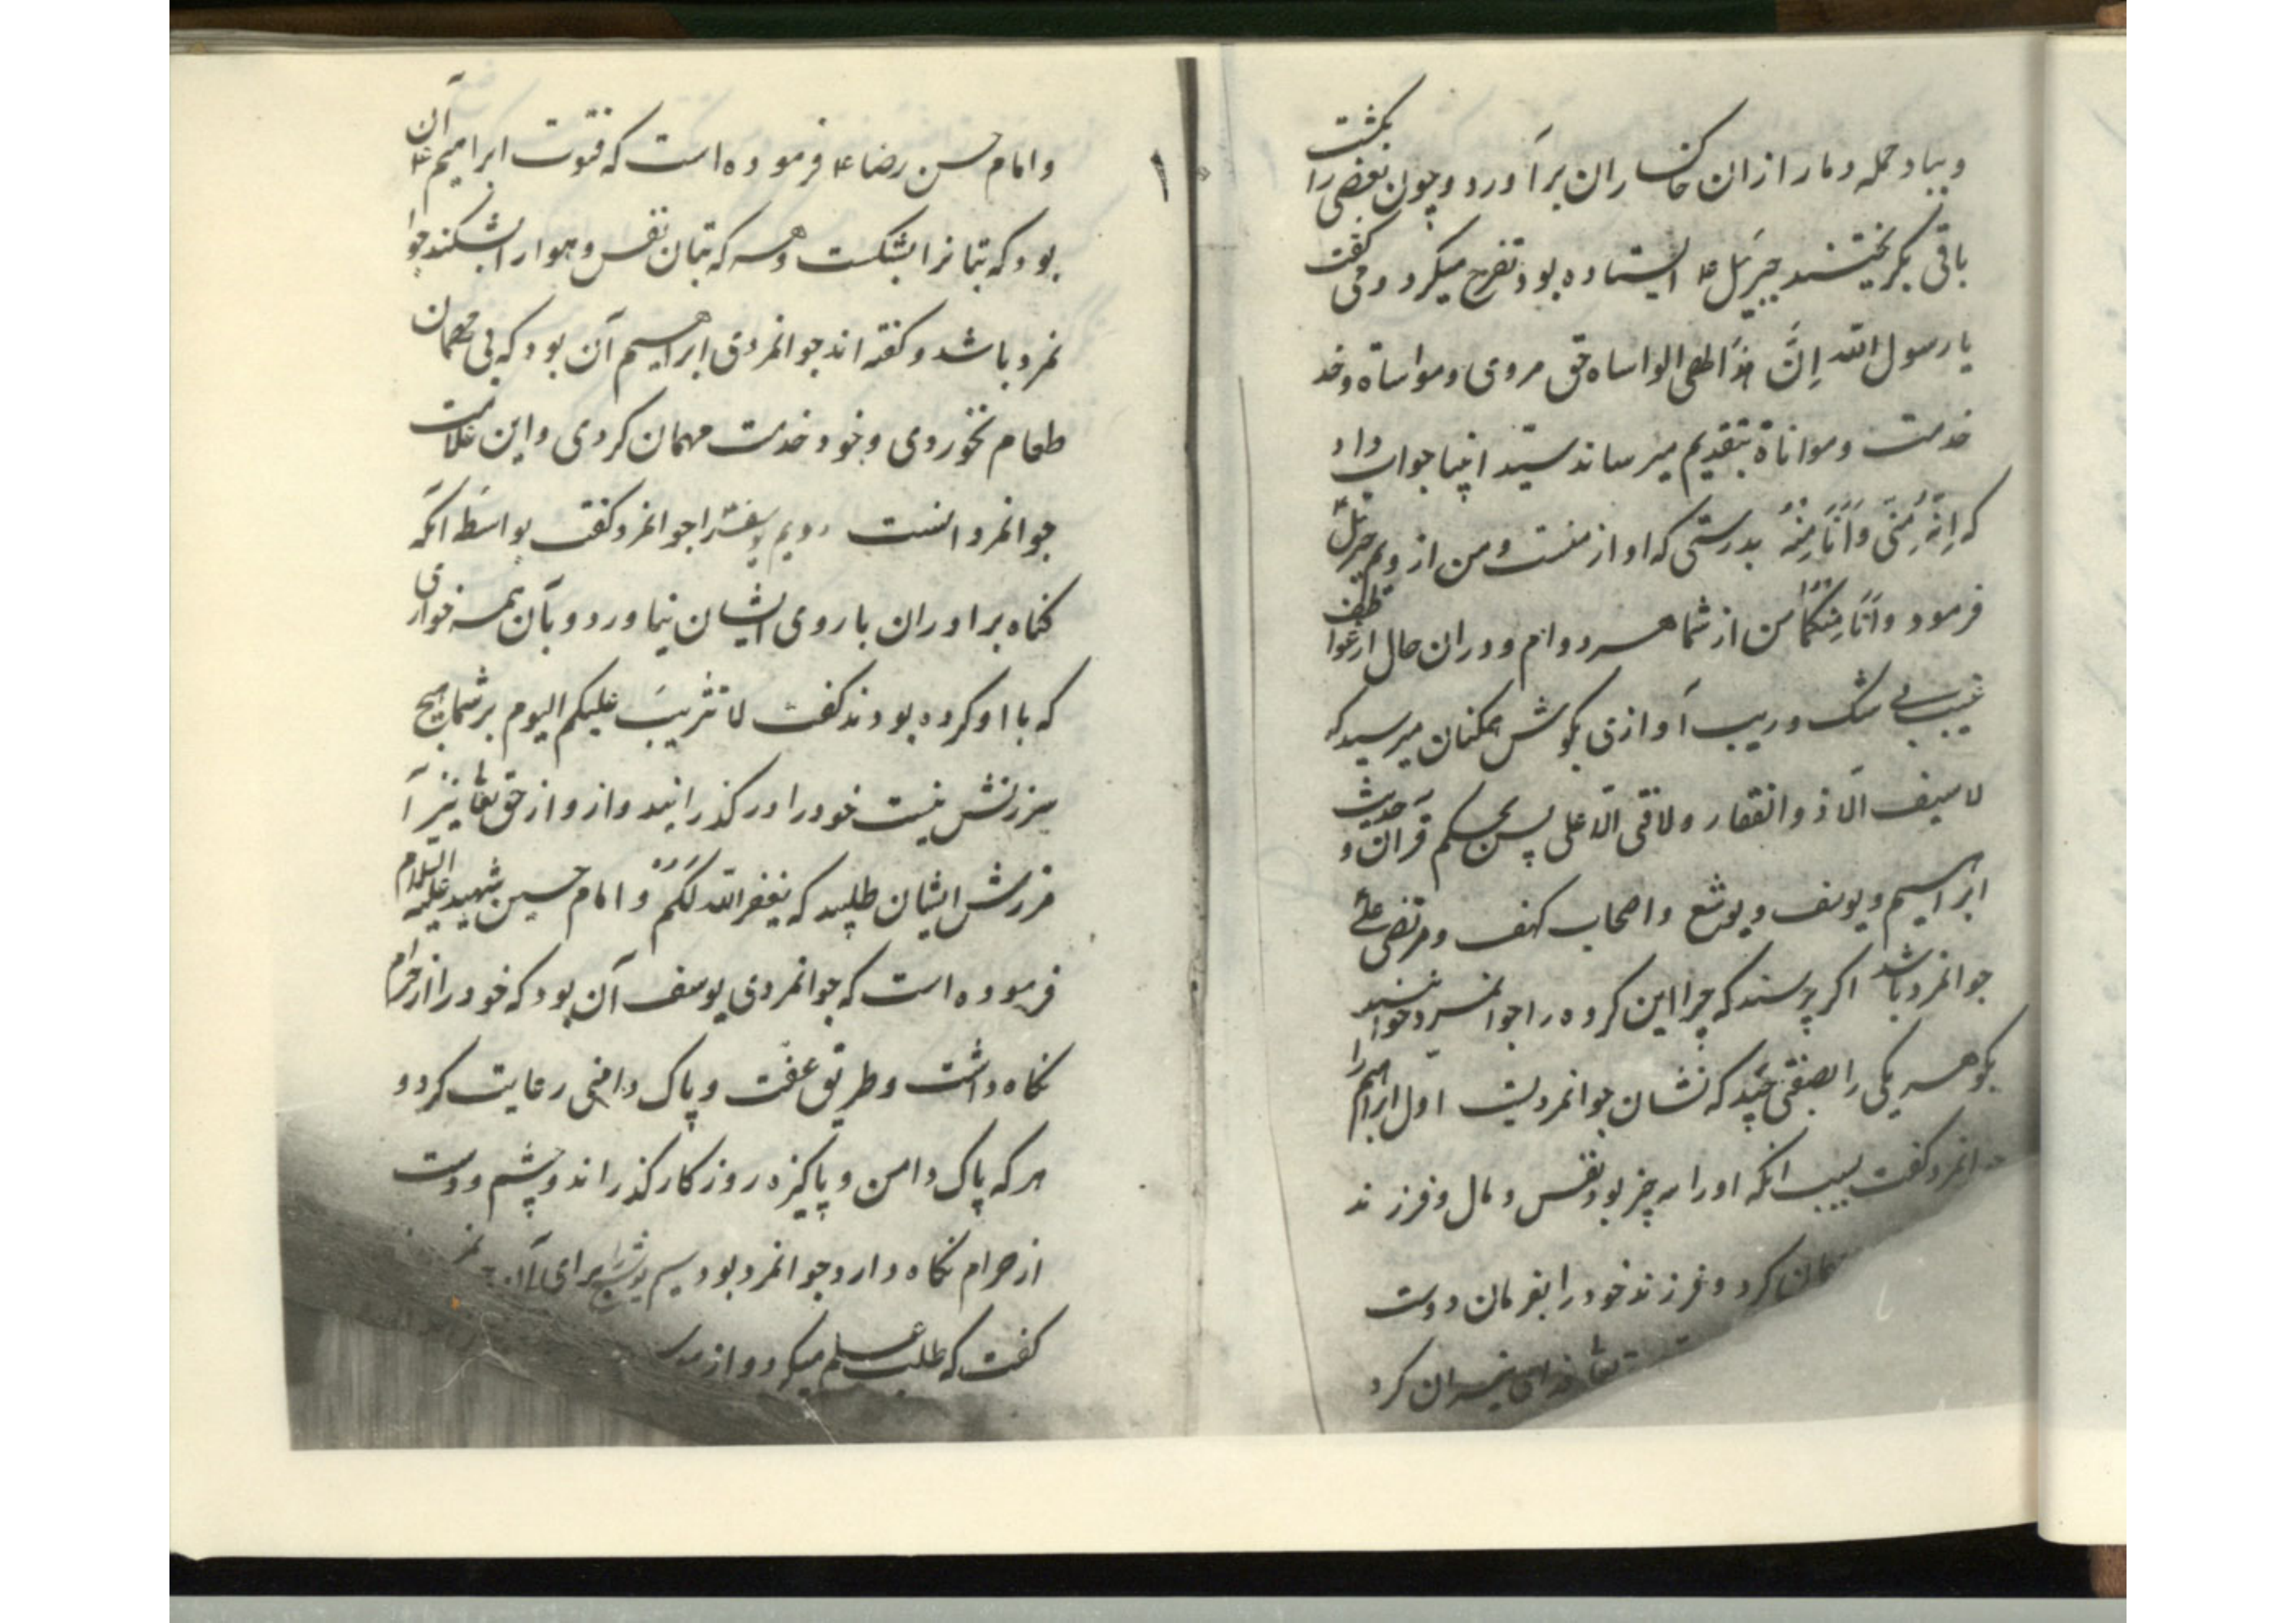 و بباد حمله دمار ازان خاکساران برآورد و چون بعضی را بکشت
باقی بگریختند جبرئیل ۴ ایستاده بود تفرج میکرد و می گفت
یا رسول الله اِنَّ هذَا لهی المواساه حق مردی و مواساة و خد
خدمت و مواناة بتقدیم میرساند سید انبیا جواب داد
که اِنَّهُ مِنّی وَاَنَا مِنْهُ بدرستی که او از منست و من از ویم جبرئیل ۴
فرمود وَاَنَا مِنْکُمَا من از شما هر دو ام و دران حال از هوا طرف
غیب بی شک و ریب آوازی بگوش همکنان میرسید که
لا سیف الّا ذو الفقار ولا فتی الّا علی پس بحکم قرآن و حدیث
ابراهیم و یوسف و یوشع و اصحاب کهف و مرتضی علی
جوانمرد باشد اکر پرسند که چرا این کروه را جوانمرد خوانند
بکو هر یکی را بصفتی چند که نشان جوانمردیست اول ابراهیم را
جوانمرد کفت بسبب انکه او را سه چیز بود نفس و مال و فرزند
کرد و فرزند خود را بفرمان دوست
خدای نیران کرد
و امام حسن رضا ۴ فرموده است که فتوت ابراهیم ۴ آن
بود که بتانرا بشکست و هر که بتان نفس و هوا را بشکند جوا
نمرد باشد و کفته اند جوانمردی ابراهیم آن بود که بی مهمان
طعام نخوردی و خود خدمت مهمان کردی و این علامت
جوانمردانست دویم یوسف را جوانمرد کفت بواسطه آنکه
کناه براوران با روی ایشان نیاورد و بآن همه خواری
که با او کرده بودند کفت لا تثریبَ علیکم الیوم بر شما هیچ
سرزنش نیست خود را درکذرانید و از و از حق تعا نیز آ
مرزش ایشان طلبید که یغفر الله لَکُمْ و امام حسین شهید علیه السلام
فرموده است که جوانمردی یوسف آن بود که خود را از حرام
نکاه داشت و طریق عفت و پاک دامنی رعایت کرد و
هر که پاک دامن و پاکیزه روزکار کذراند و چشم و دست
از حرام نکاه دارد جوانمرد بود سیم یوشع برای آن
کفت که طلب علم میکرد و از